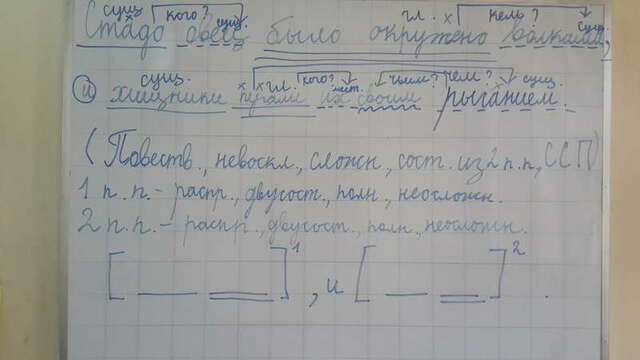 сущ. кого? сущ. гл. х кем? сущ.
Стадо овец было окружено волками,
сущ. х х гл. кого? мест. чьим? чем? сущ.
и хищники пугали их своим рычанием.
(Повеств., невоскл., сложн., сост. из 2 п.п., ССП)
1 п.п. - распр., двусост., полн., неосложн.
2 п.п. - распр., двусост., полн., неосложн.
[ ]1, и [ ]2.